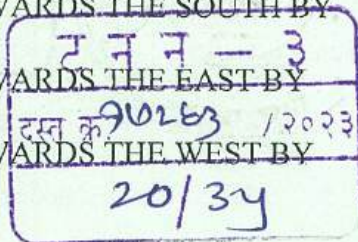 WARDS THE SOUTH BY
ट न न — ३
WARDS THE EAST BY
दस्त क्र. १७२६३ /२०२३
WARDS THE WEST BY
२०/३५